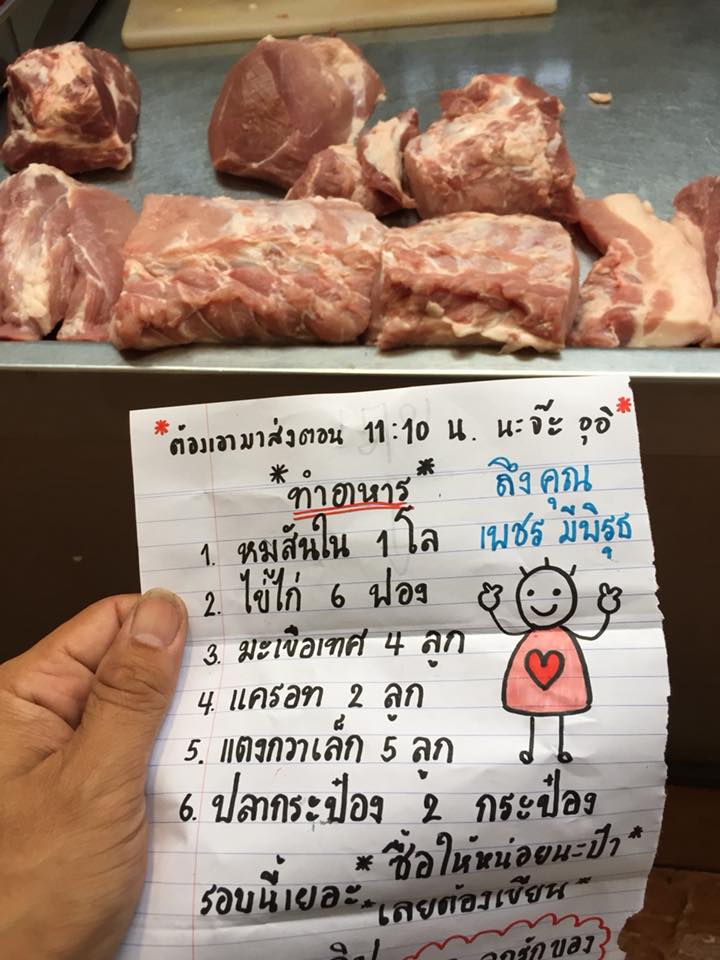 *ต้องเอามาส่งตอน 11:10 น. นะจ๊ะ อุอิ*
*ทำอาหาร*
ถึงคุณ
เพชร มีพิรุธ
1. หมูสันใน 1 โล
2. ไข่ไก่ 6 ฟอง
3. มะเขือเทศ 4 ลูก
4. แครอท 2 ลูก
5. แตงกวาเล็ก 5 ลูก
6. ปลากระป๋อง 2 กระป๋อง
*ซื้อให้หน่อยนะป๊า*
รอบนี้เยอะ
*เลยต้องเขียน*
ลูกรักของ